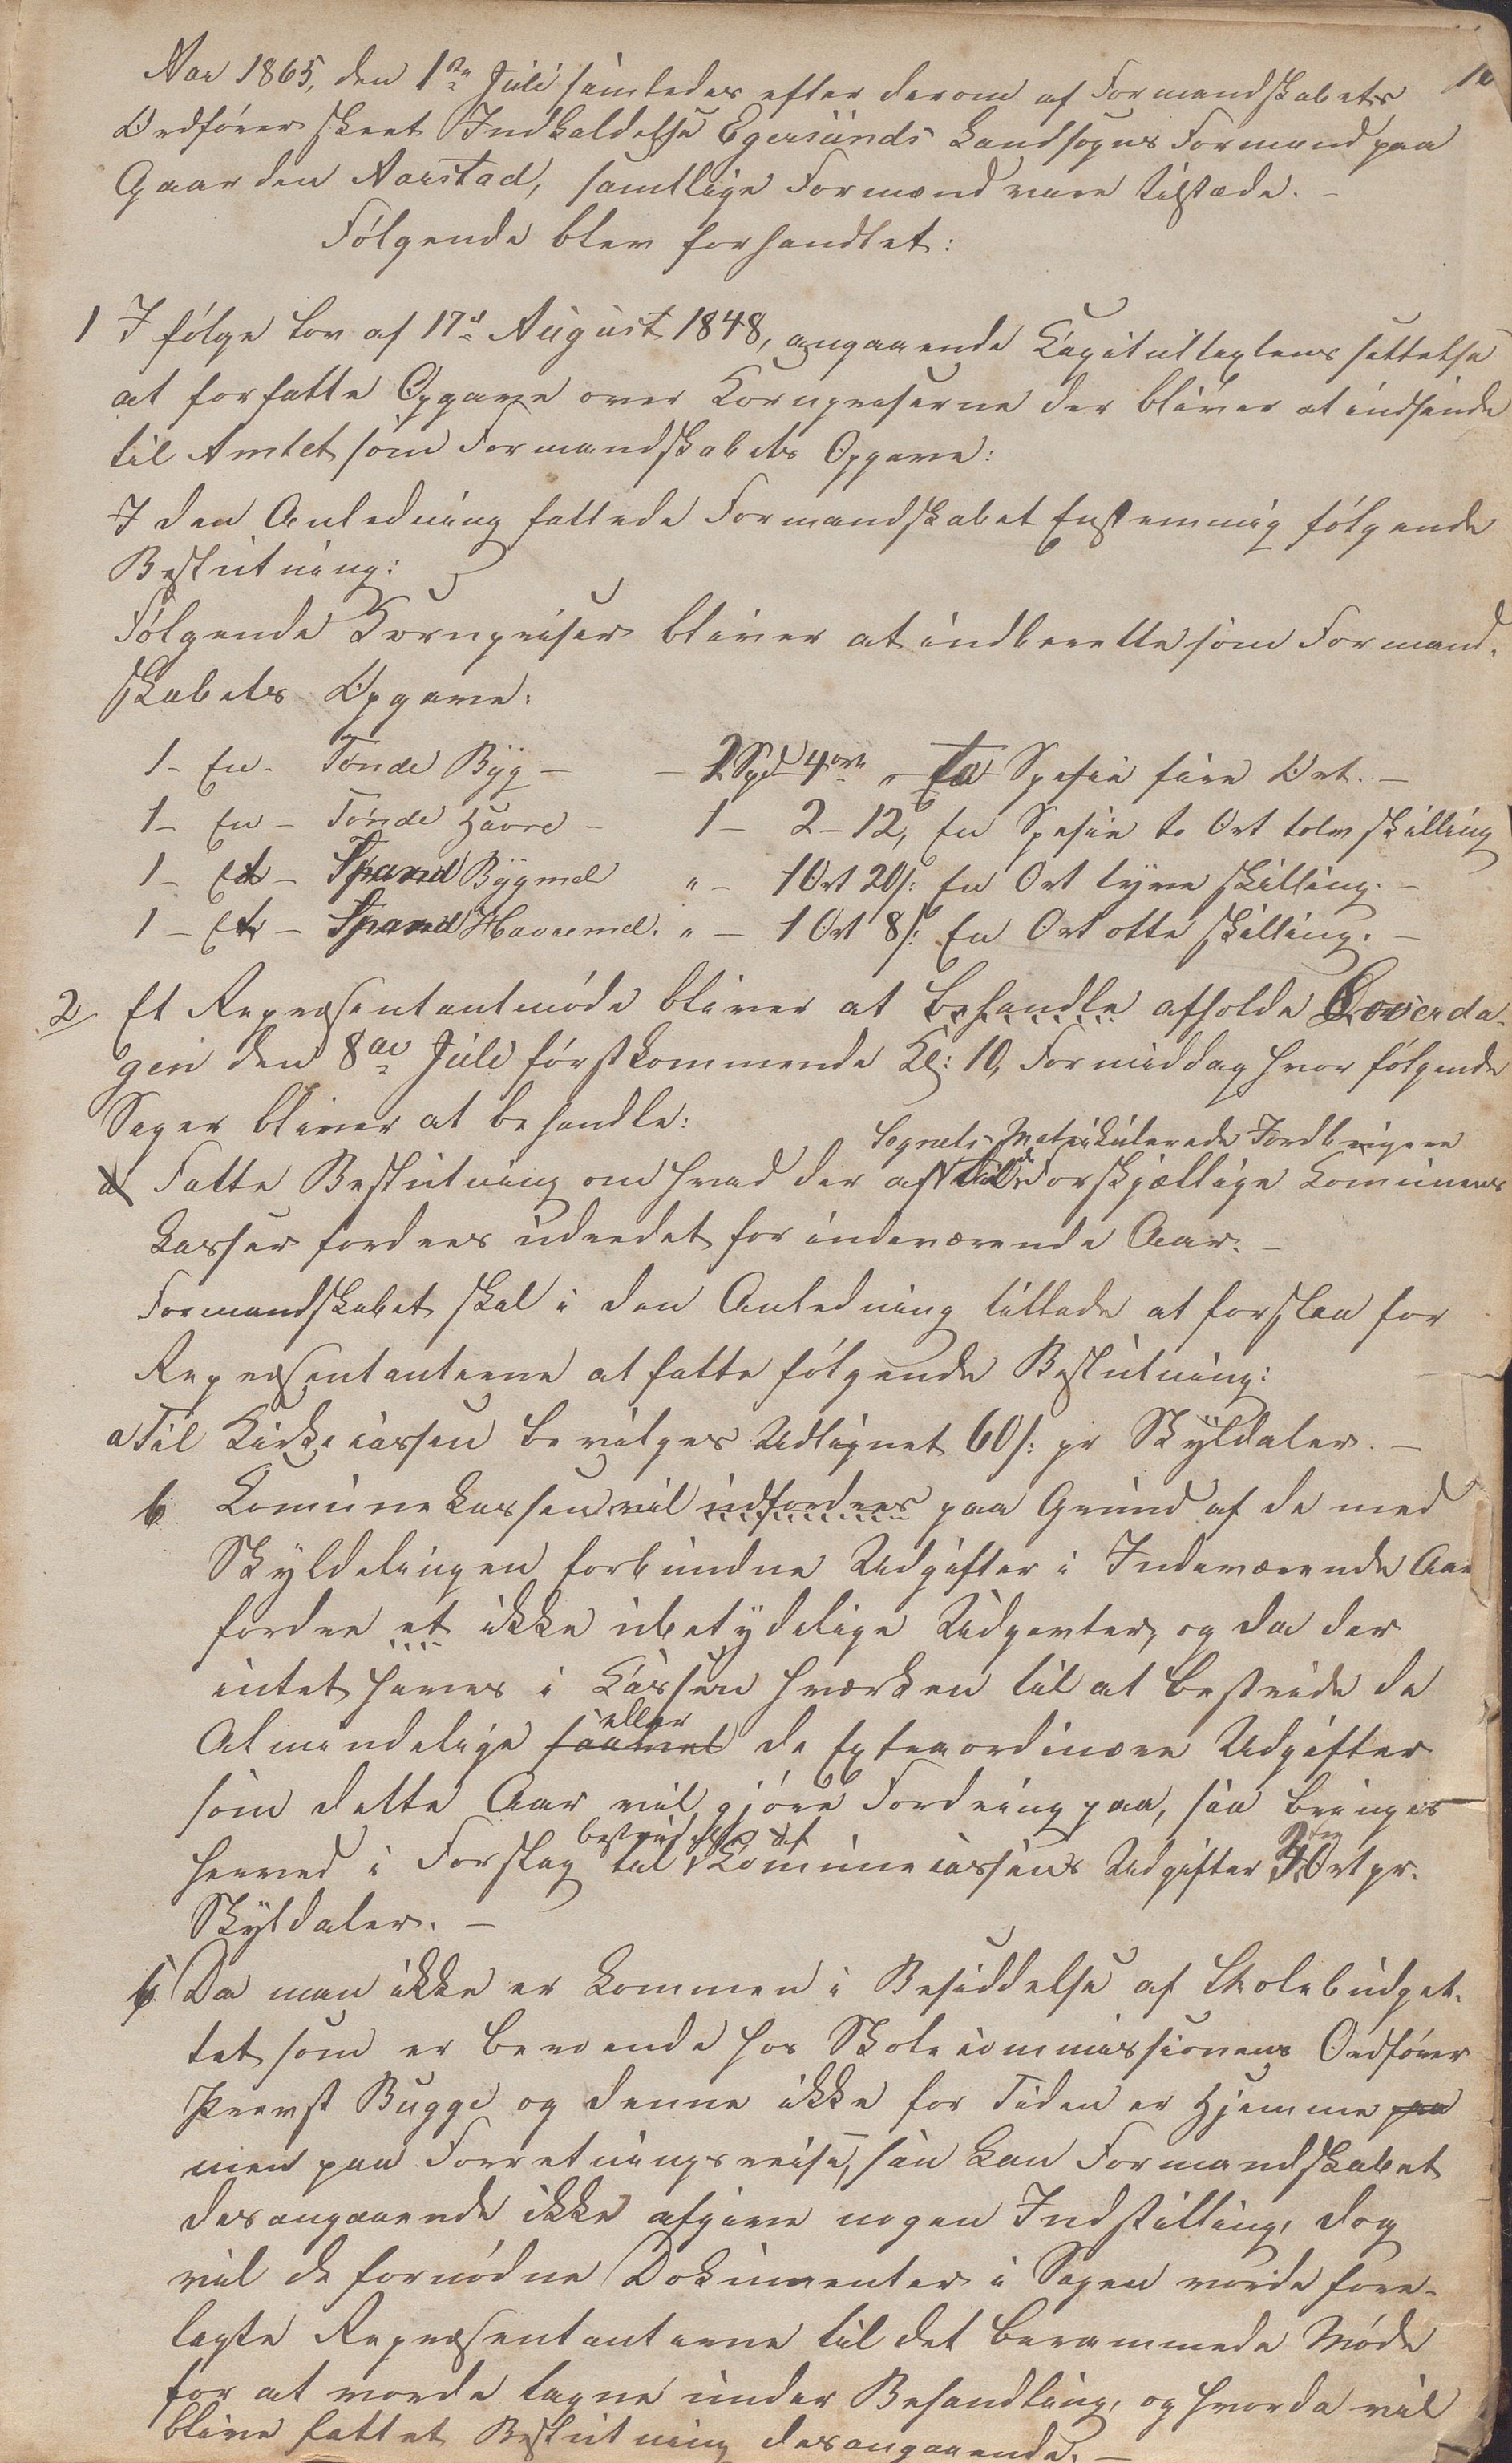 10
Aar 1865, den 1ste Juli samledes efter derom af Formandskabets
Ordfører skeet Indkaldelse Egersunds Landsogns Formænd paa
Gaarden Aarstad, samtlige Formænd vare tilstæde. –
Følgende blev forhandlet:
1 I følge Lov af 17d August 1848, angaaende Capitelstaxtens settelse
at forfatte Opgave over Kornpriserne der bliver at indsende
til Amtet som Formandskabets Opgave:
I den Anledning fattede Formandskabet Enstemmig følgende
Beslutning:
Følgende Kornpriser bliver at indberette som Formand-
skabets Opgave:
1 – En – Tønde Byg – – 2 Spd 4 ort " To Spesie fire Ort. –
1 – En – Tønde Havre – 1 – 2 – 12, En Spesie to Ort tolv skilling
1 – Et – Spand Bygmel " – 1 Ort 20 s: En Ort tyve skilling. –
1 – Et – Spand Havremel. " – 1 Ort 8 s: En Ort otte skilling. –
2 Et Repræsentantmøde bliver at behandle afholde Løverda-
gen den 8de Juli førstkommende Kl: 10, Formiddag hvor følgende
Sager bliver at behandle:
Sognets Matrikulerede Jordbrugere
a Fatte Beslutning om hvad der af til de Forskjællige Comunens
Kasser fordres udredet for indeværende Aar. –
Formandskabet skal i den Anledning tillade at forslaa for
Repræsentanterne at fatte følgende Beslutning:
a Til Kirkecassen bevilges Udlignet 60 s: pr Skyldaler. –
b Comunekassen vil udfordres paa Grund af de med
Skyldelingen forbundne Udgifter i Indeværende Aar
fordre et ikke ubetydelige Udgevter, og da der
intet haves i Cassen hværken til at bestride de
eller
Almindelige saavel de Extraordinære Udgifter
som dette Aar vil gjøre Fordring paa, saa bringes
bestridelse af
herved i Forslag til Comunecassens Udgifter 3 Ort pr.
Skyldaler. –
c Da man ikke er kommen i Besiddelse af Skolebudget-
tet som er beroende hos Skolecommissionens Ordfører
Provst Bugge og denne ikke for Tiden er Hjemme paa
men paa Forretningsreise, saa kan Formandskabet
desangaaende ikke afgive nogen Indstilling, dog
vil de fornødne Dokumenter i Sagen vorde fore-
lagte Repræsentanterne til det berammede Møde
for at vorde tagne under Behandling, og hvorda vil
blive fattet Beslutning desangaaende. –